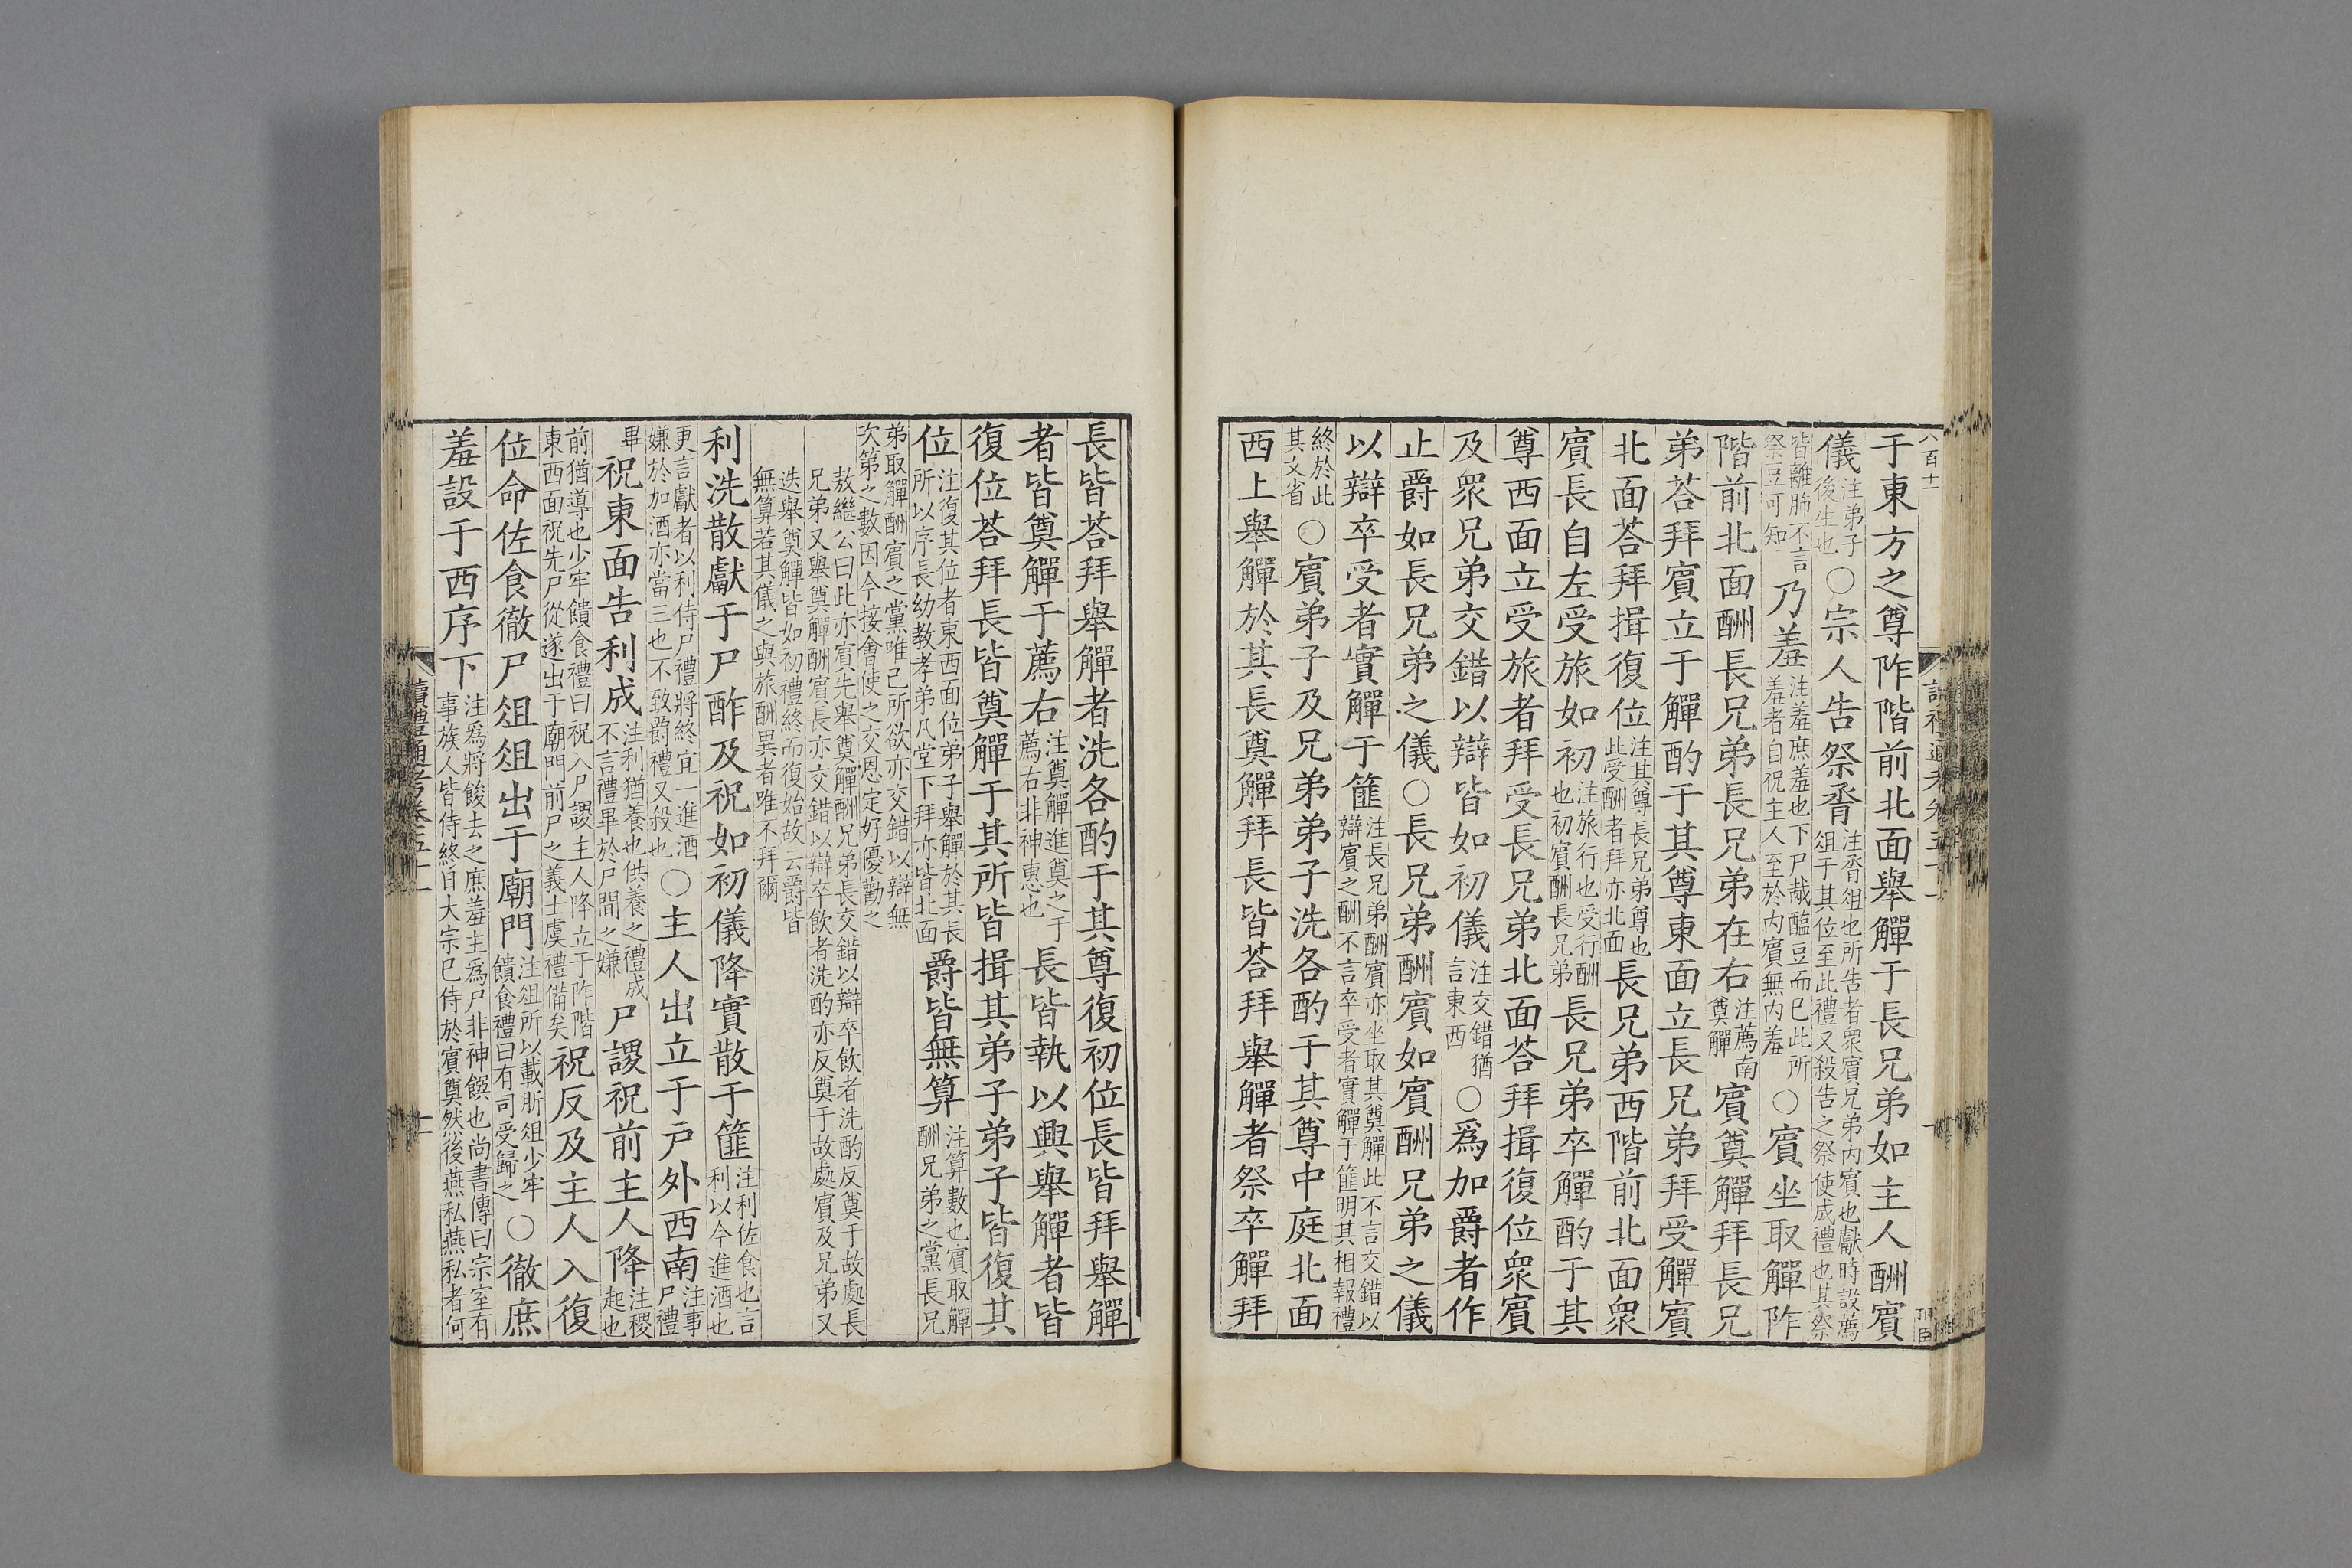 于東方之尊阼階前北面舉觶于長兄弟如主人酬賓
儀注弟子後生也○宗人告祭脀注脀俎也所告者衆賓兄弟內賓也獻時設薦俎于其位至此禮又殺告之祭使成禮也其祭
皆離肺不言祭豆可知乃羞注羞庶羞也下尸胾醢豆而已此所羞者自祝主人至於內賓無內羞○賓坐取觶阼
階前北面酬長兄弟長兄弟在右注薦南奠觶賓奠觶拜長兄
弟荅拜賓立于觶酌于其尊東面立長兄弟拜受觶賓
北面荅拜揖復位注其尊長兄弟尊也此受酬者拜亦北面長兄弟西階前北面衆
賓長自左受旅如初注旅行也受行酬也初賓酬長兄弟長兄弟卒觶酌于其
尊西面立受旅者拜受長兄弟北面荅拜揖復位衆賓
及衆兄弟交錯以辯皆如初儀注交錯猶言東西○爲加爵者作
止爵如長兄弟之儀○長兄弟酬賓如賓酬兄弟之儀
以辯卒受者實觶于篚注長兄弟酬賓亦坐取其奠觶此不言交錯以辯賓之酬不言卒受者實觶于篚明其相報禮
終於此其文省○賓弟子及兄弟弟子洗各酌于其尊中庭北面
西上舉觶於其長奠觶拜長皆荅拜舉觶者祭卒觶拜
長皆荅拜舉觶者洗各酌于其尊復初位長皆拜舉觶
者皆奠觶于薦右注奠觶進奠之于薦右非神惠也長皆執以興舉觶者皆
復位荅拜長皆奠觶于其所皆揖其弟子弟子皆復其
位注復其位者東西面位弟子舉觶於其長所以序長幼教孝弟凡堂下拜亦皆北面爵皆無算注算數也賓取觶酬兄弟之黨長兄
弟取觶酬賓之黨唯己所欲亦交錯以辯無次第之數因今接會使之交恩定好優勸之
敖繼公曰此亦賓先舉奠觶酬兄弟長交錯以辯卒飲者洗酌反奠于故處長兄弟又舉奠觶酬賓長亦交錯以辯卒飲者洗酌亦反奠于故處賓及兄弟又
迭舉奠觶皆如初禮終而復始故云爵皆無算若其儀之與旅酬異者唯不拜爾
利洗散獻于尸酢及祝如初儀降實散于篚注利佐食也言利以今進酒也
更言獻者以利侍尸禮將終宜一進酒嫌於加酒亦當三也不致爵禮又殺也○主人出立于戶外西南注事尸禮
畢祝東面告利成注利猶養也供養之禮成不言禮畢於尸間之嫌尸謖祝前主人降注稷起也
前猶導也少牢饋食禮曰祝入尸謖主人降立于阼階東西面祝先尸從遂出于廟門前尸之義士虞禮備矣祝反及主人入復
位命佐食徹尸俎俎出于廟門注俎所以載肵俎少牢饋食禮曰有司受歸之○徹庶
羞設于西序下注爲將餕去之庶羞主爲尸非神饌也尚書傳曰宗室有事族人皆侍終日大宗已侍於賓奠然後燕私燕私者何